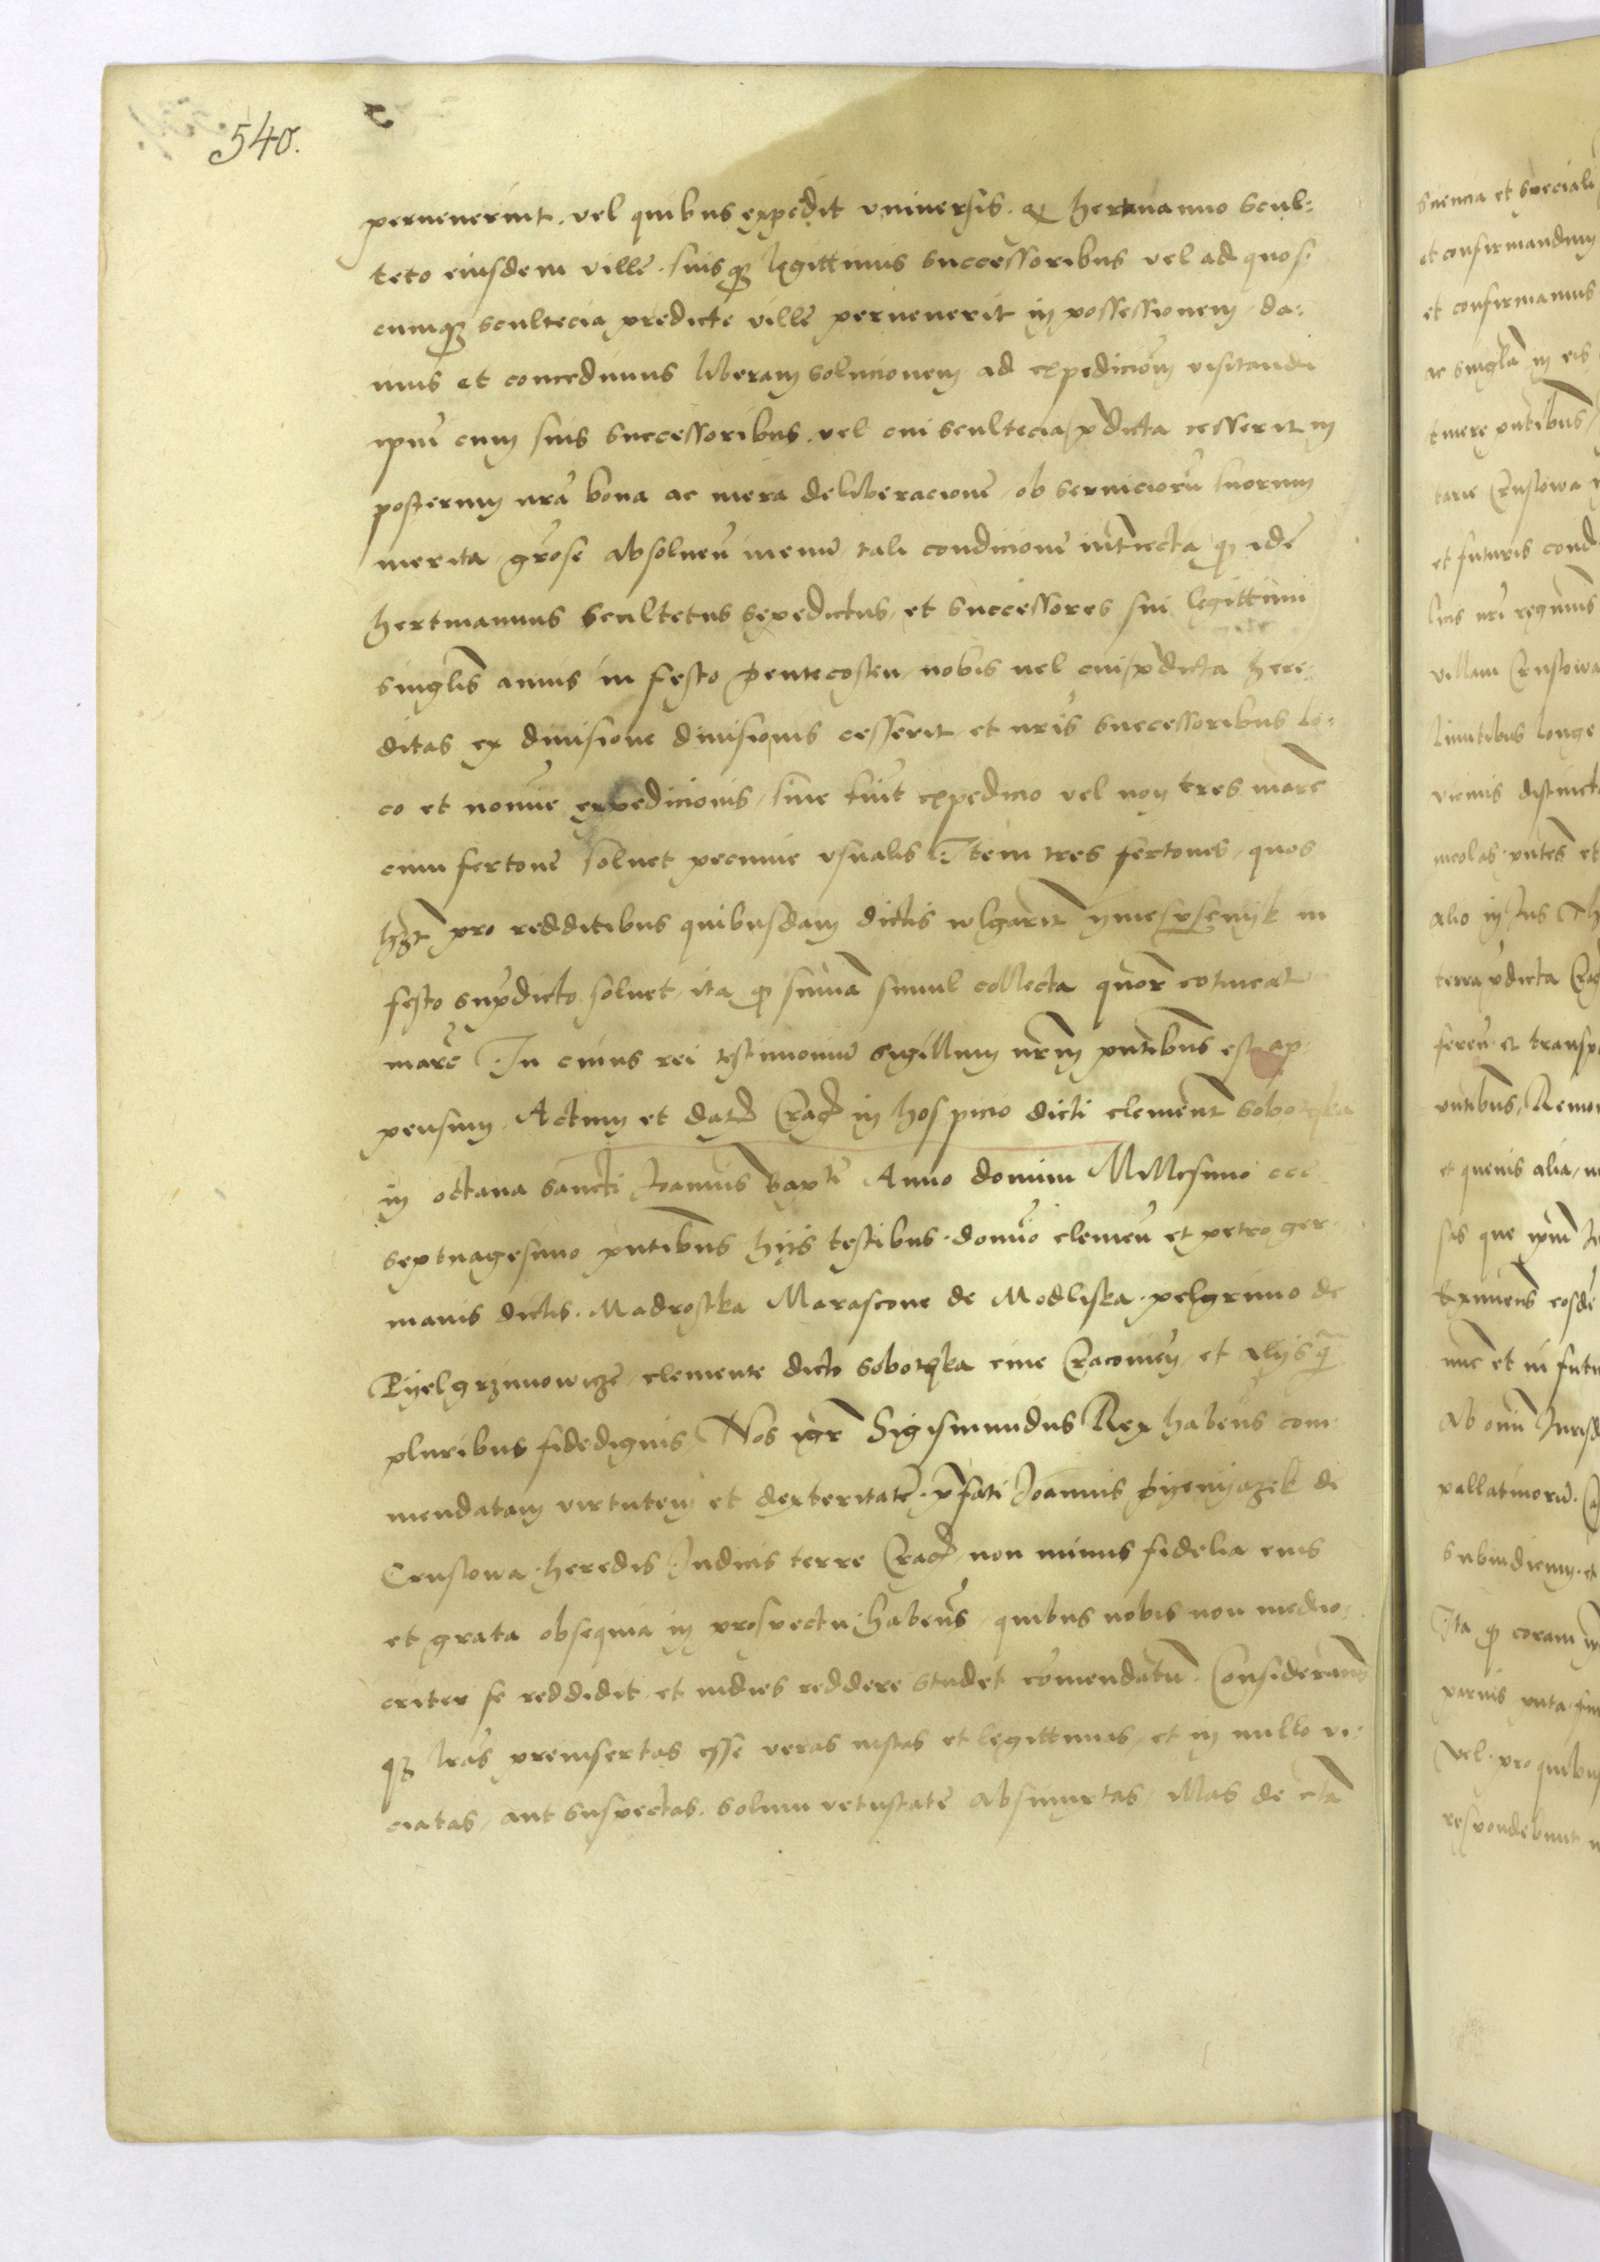 540.
pervenerint. vel quibus expedit universis. qp hertmanno scul:
teto eiusdem ville. suisq3 legittimis successoribus vel ad quos:
cumq3 scultecia predicte ville pervenerit in possessionem, da:
mus et concedimus liberam solucionem ad expedicionem visitandi
ipm̃ cum suis successoribus. vel cui scultecia, p̃dicta cesserit in
posterum nr̃a bona ac mera deliberacione, ob serviciorũ suorum
merita, gr̃ose absolven̄ tali condicione interiecta q idẽ
hertmannus scultetus sepedictus, et successores sui legittimi
singlis annis in festo pentecosten, nobis vel cui, p̃dicta here:
ditas ex divisione divisionis cesserit et nr̃is successoribus lo:
co et nomine expedicionis, sive fuit expedicio vel non tres marc̃
cum fertone solvet pecunie usualis. Item tres fertones, quos
hr̃t pro redditibus quibusdam dictis wlgarit̃ in
festo sup̃dicto solvet, ita q summa simul collecta quor̃ cotineat
marc̃ In cuius rei testimonium sigillum nr̃m pñtibus est ap:
pensum. Actum et dat̃ Crac̃ in hospicio dicti clement̃ sobothka
in octava sancti Joannis bapt̃e Anno domini Millesimo ccc
septuagesimo pñtibus hijs testibus. domino clemen̄ et petro ger:
manis dictis. Madrostka Marascone de Modliska. pelgrimo de
Pyelgrzimowicze, clemente dicto sobothka cive Cracovien̄, et alijs q̃
pluribus fidedignis, Nos igr̃ Sigismundus Rex habens com:
mendatam virtutem et dexteritatẽ. p̃fati Joannis pyenyazek de
Crustowa. heredis Judicis terre Crac̃, non minus fidelia eius
et grata obsequia in prospectu habens, quibus nobis non medio:
criter se reddidit, et indies reddere studet comendatum. Considerans
q3 lr̃as preinsertas esse veras iustas et legittimas, et in nullo vi:
ciatas, aut suspectas. solum vetustate absumptas, illas de cta
scientia et speciali
et confirmandum
et confirmamus
ac singla in eis
tenere pñtibus
Crustowa
et futuris
villam Crustowa
limitibus longe
vicinis distinct
pñtes et
alio in Jus Th
terra p̃dicta Crac
feren̄ et transp
pñtibus, Remov
et quevis alia,
que ipm̃
Eximens eosde
nunc et in futu
Ab omn Jurisd
pallatinorũ. Ca
subiudicum. et
Ita q coram
parvis
Vel pro quibus
respondebunt